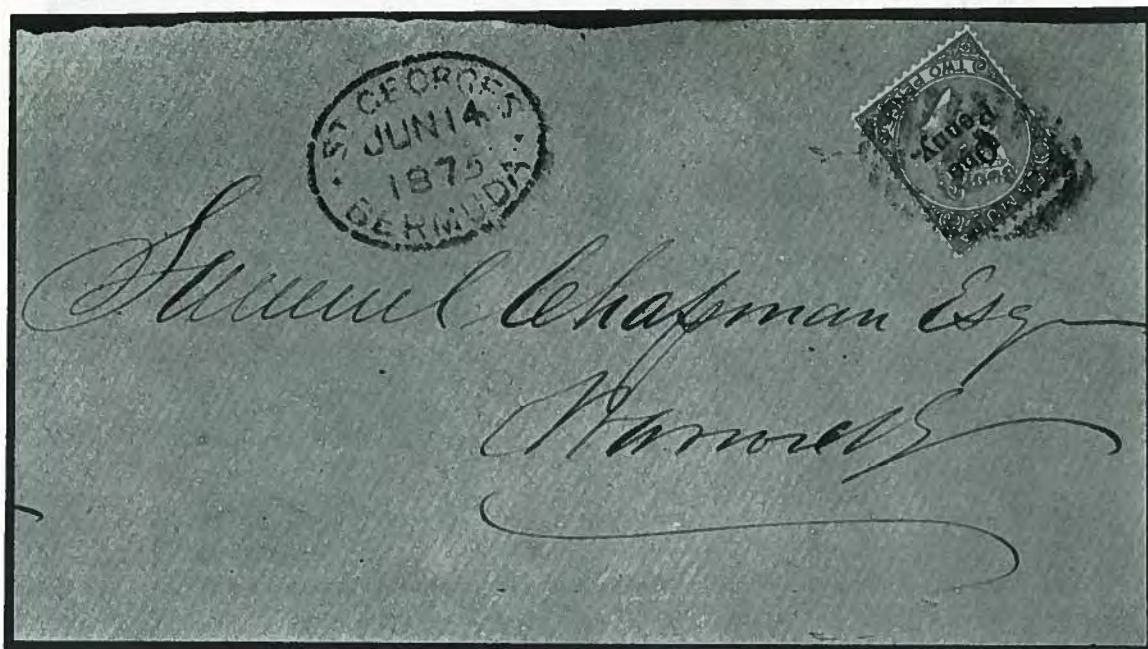 ST GEORGES
JUN 14
1875
BERMUDA
TWO PENCE
One
Penny.
BERMUDA
Samuel Chapman Esq
Warwick